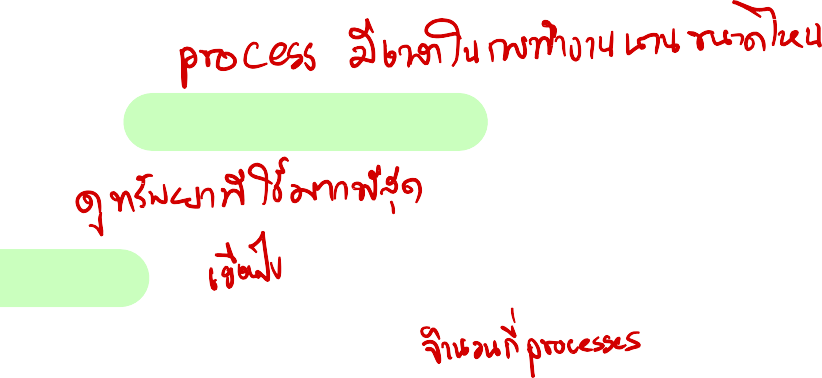 process มีเวลาในการทำงานนานขนาดไหน
ดูทรัพยากรที่ใช้มากที่สุด
จำนวนกี่ processes